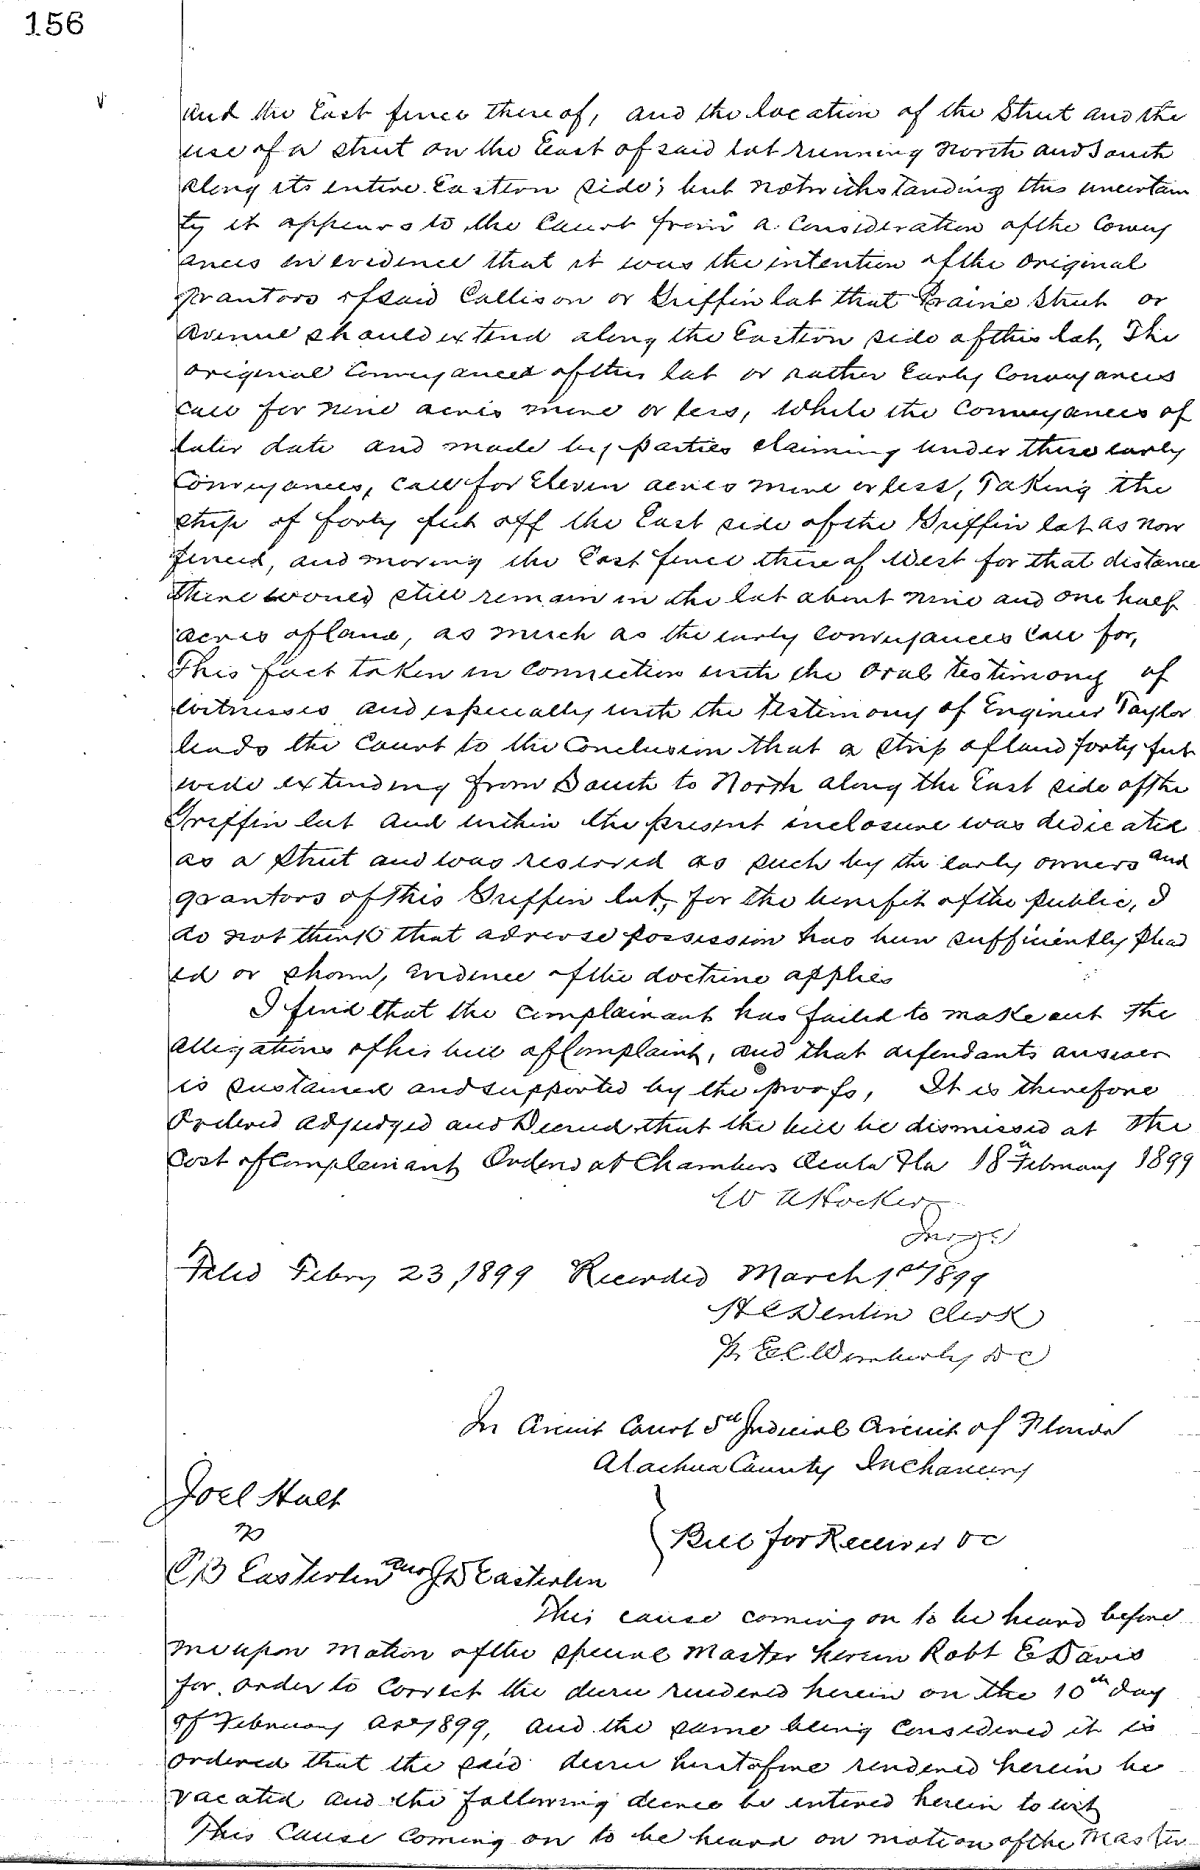 156
and the East fence thereof, and the location of the Street and the
use of a street on the East of said lot running North and South
along its entire Eastern side; but notwithstanding this uncertain
ty it appears to the Court from a consideration of the Convey
ances in evidence that it was the intention of the original
grantors of said Callison or Griffin lot that Prairie Street or
Avenue should extend along the Eastern side of this lot, The
original Conveyances of this lot or rather Early Conveyances
call for nine acres more or less, While the Conveyances of
later date and made by parties claiming under these early
Conveyances, call for Eleven acres more or less, Taking the
strip of forty feet off the East side of the Griffin lot as now
fenced, and moving the East fence thereof West for that distance
there would still remain in the lot about nine and one half
acres of land, as much as the early conveyances call for,
This fact taken in connection with the oral testimony of
witnesses and especially with the testimony of Engineer Taylor
leads the Court to the Conclusion that a strip of land forty feet
wide extending from South to North along the East side of the
Griffin lot and within the present inclosure was dedicated
as a street and was reserved as such by the early owners and
grantors of this Griffin lot, for the benefit of the public, I
do not think that adverse possession has been sufficiently plead
ed or shown, evidence of the doctrine applies
I find that the complainant has failed to make out the
allegations of his bill of Complaint, and that defendants answer
is sustained and supported by the proofs, It is therefore
Ordered adjudged and Decreed that the bill be dismissed at the
Cost of Complainant Ordered at Chambers Ocala Fla 18th February 1899
W A Hocker
Judge
Filed Febry 23, 1899 Recorded March 1st 1899
H C Denton Clerk
Pr E C Wimberly D C
In Circuit Court 5th Judicial Circuit of Florida
Alachua County In Chancery
Joel Hult
vs
C B Easterlin and J D Easterlin
Bill for Receiver &c
This cause coming on to be heard before
me upon motion of the special Master herein Robt E Davis
for order to correct the decree rendered herein on the 10th day
of February AD 1899, and the same being considered it is
ordered that the said decree heretofore rendered herein be
vacated and the following decree be entered herein to wit
This Cause coming on to be heard on motion of the Master